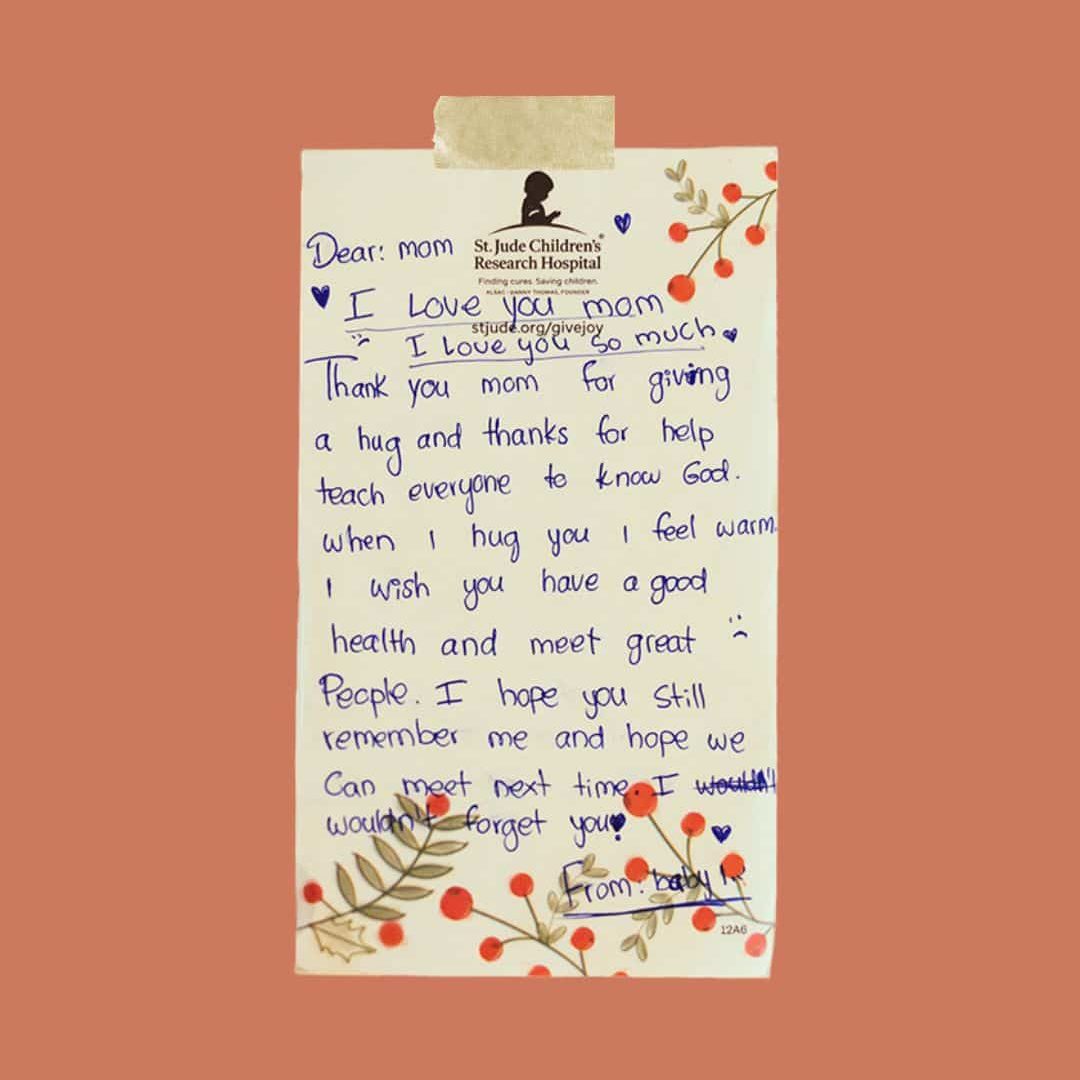 St. Jude Children's®
Research Hospital
Finding cures. Saving children.
ALSAC • DANNY THOMAS, FOUNDER
stjude.org/givejoy
Dear: mom
I Love you mom
I Love you so much
Thank you mom for giving
a hug and thanks for help
teach everyone to know God.
when I hug you I feel warm.
I wish you have a good
health and meet great
People. I hope you still
remember me and hope we
Can meet next time. I wouldn't
wouldn't forget you!
From: baby
12A6